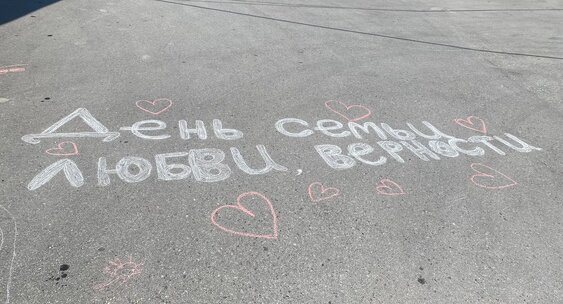 День семьи
любви, верности